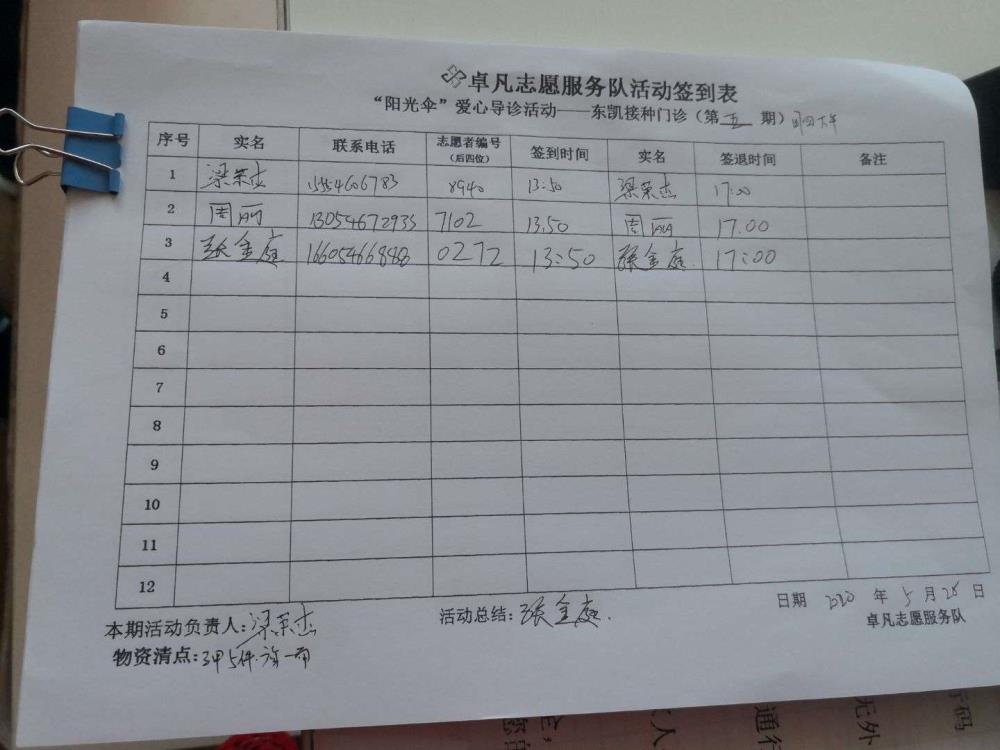 卓凡志愿服务队活动签到表
“阳光伞”爱心导诊活动——东凯接种门诊（第五期）周四下午
序号 实名 联系电话 志愿者编号（后四位） 签到时间 实名 签退时间 备注
1 梁荣杰 15554606783 8940 13:50 梁荣杰 17:00
2 周丽 13054672935 7102 13.50 周丽 17.00
3 张金庭 16605466888 0272 13:50 张金庭 17:00
4
5
6
7
8
9
10
11
12
日期 2020 年 5 月 28 日
本期活动负责人：梁荣杰 活动总结：张金庭.
卓凡志愿服务队
物资清点：马甲5件.旗一面